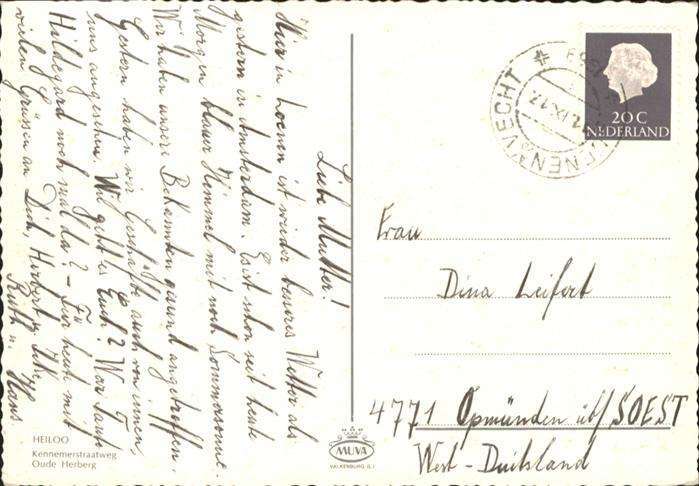 Liebe Mutter!
Hier in Loenen ist wieder besseres Wetter als
gestern in Amsterdam. Es ist schon seit heute
Morgen blauer Himmel mit noch Sommersonne.
Wir haben unsere Bekannten gesund angetroffen.
Gestern haben wir Geschäfte auch von innen
uns angesehen. Wie geht es Euch? War Tante
Hildegard noch mal da? – Für heute mit
vielen Grüssen an Dich, Herbert u.
Ruth u. Hans
HEILOO
Kennemerstraatweg
Oude Herberg
MUVA
VALKENBURG (L.)
20 C
NEDERLAND
LOENEN A/D VECHT
Frau
Dina Leifert
4771 Opmünden üb/SOEST
West-Deutsland